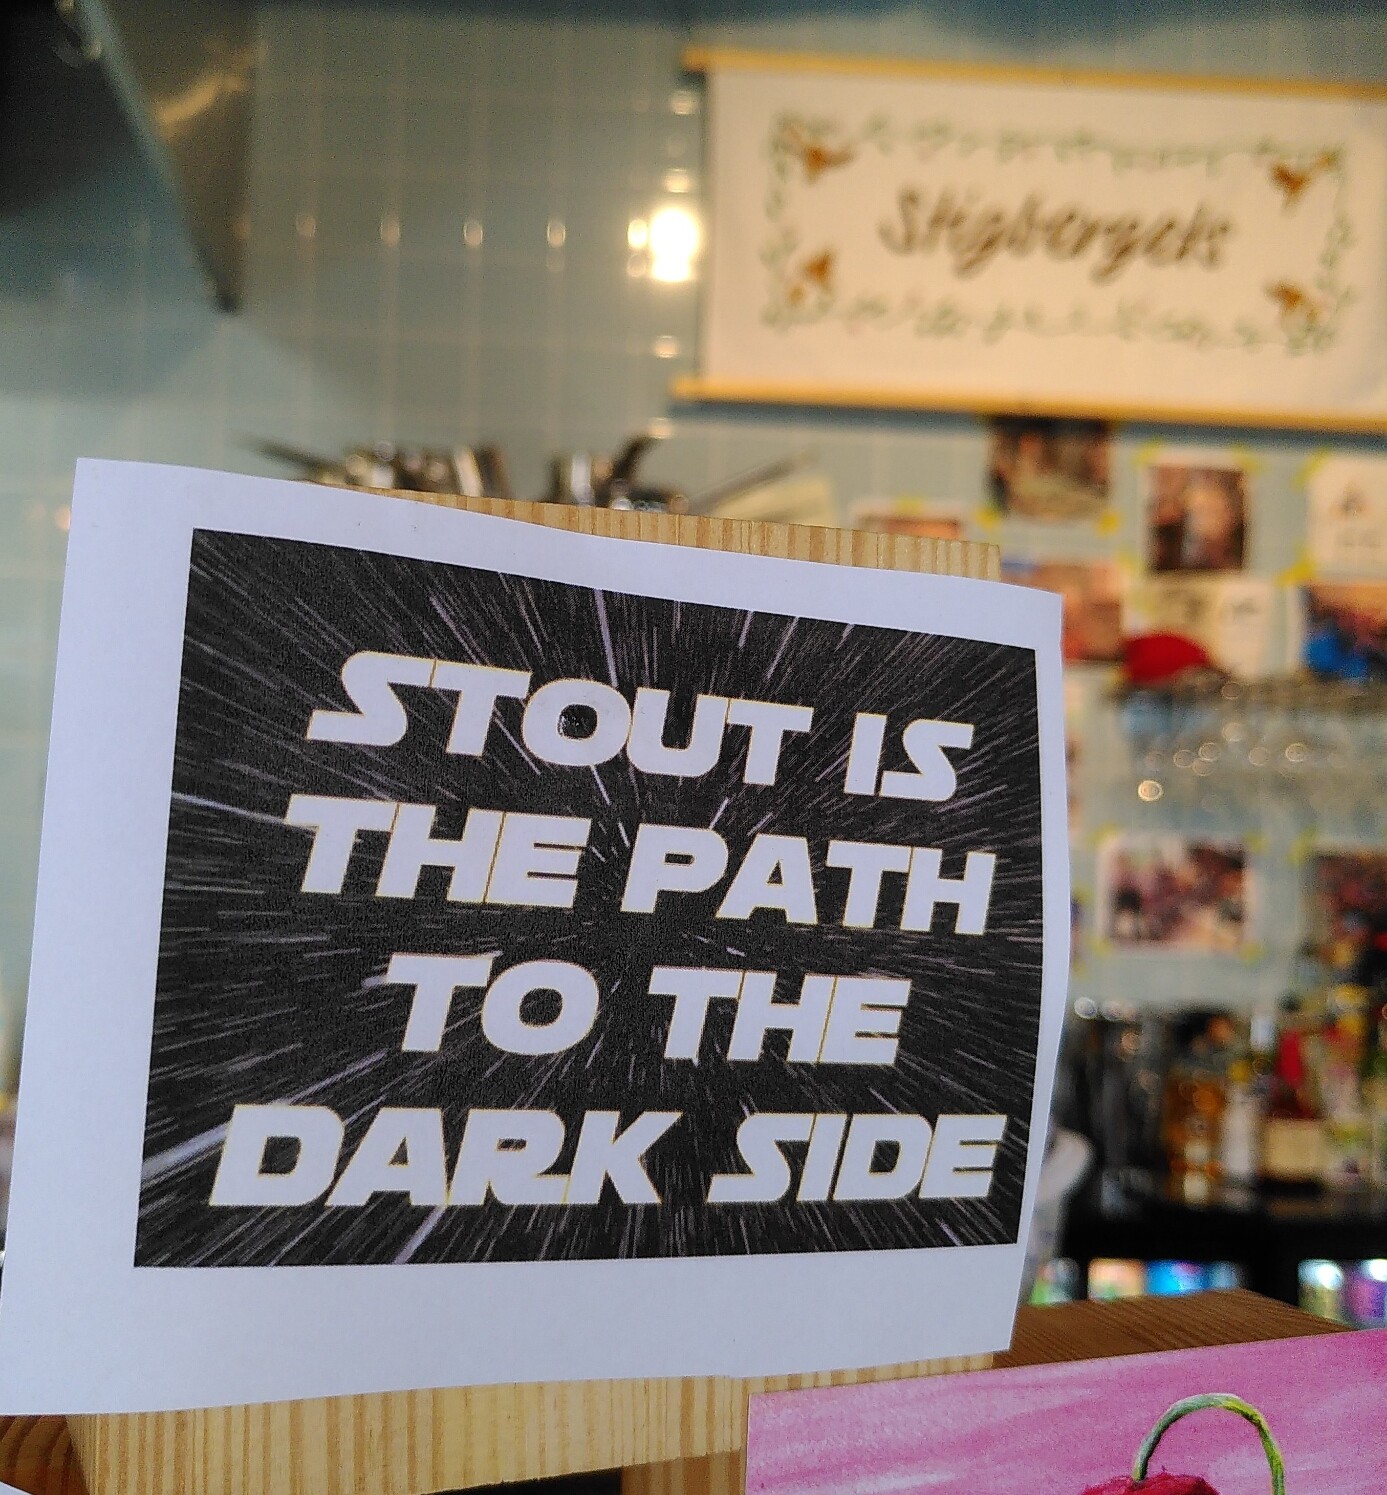 Stigbergets
STOUT IS
THE PATH
TO THE
DARK SIDE